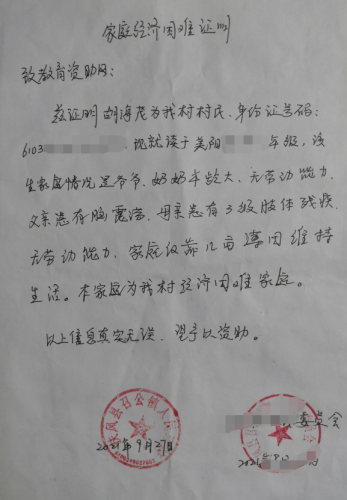 家庭经济困难证明
致教育资助网:
兹证明胡海龙为我村村民,身份证号码:
6103 现就读于美阳 年级,该
生家庭情况是爷爷、奶奶年龄大、无劳动能力,
父亲患有脑 、母亲患有3级肢体残疾、
无劳动能力、家庭仅靠几亩 田维持
生活。本家庭为我村经济困难家庭。
以上信息真实无误,望予以资助。
扶风县召公镇人民
委员会
2021年9月27日
2021年9月 日